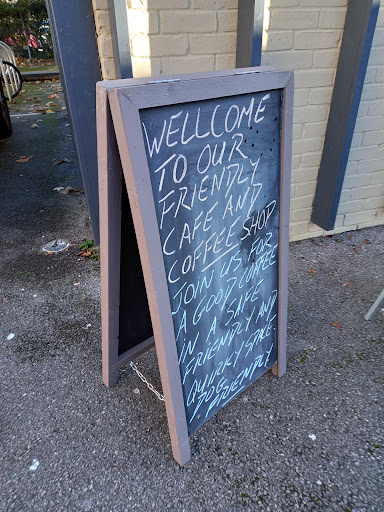 WELLCOME
TO OUR
FRIENDLY
CAFE AND
COFFEE SHOP
JOIN US FOR
A GOOD COFFEE
IN A SAFE
FRIENDLY AND
QUIRKY SPACE.
DOG
FRIENDLY